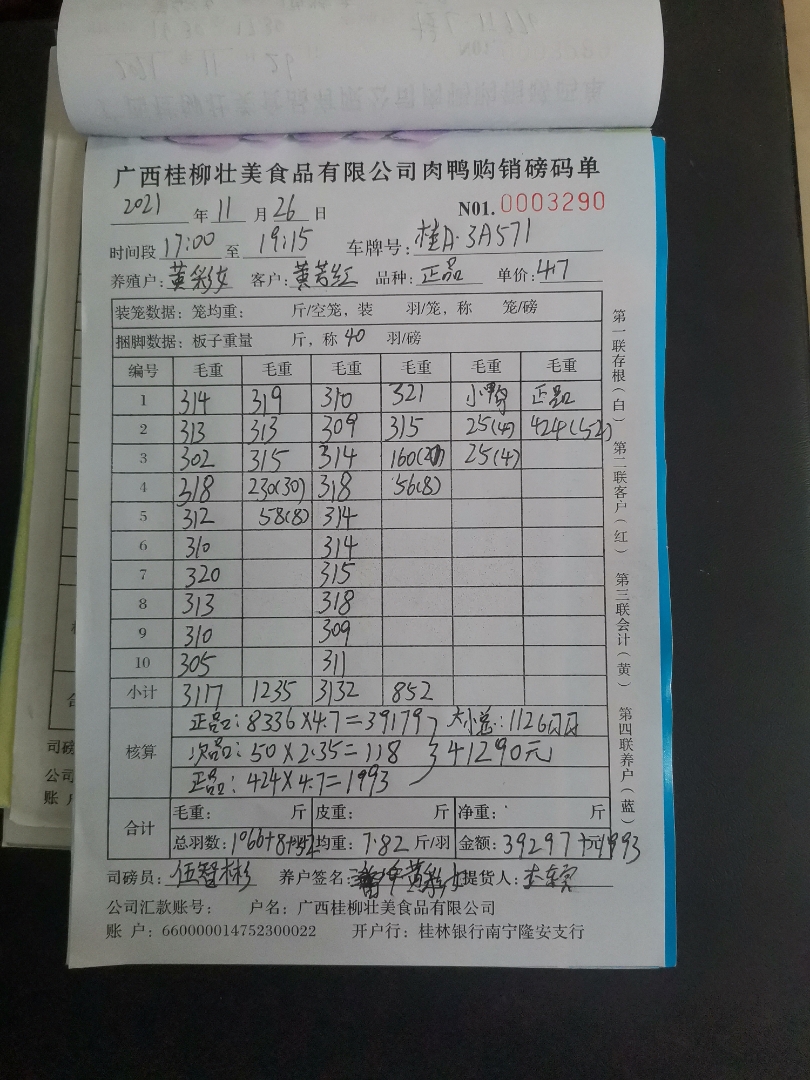 广西桂柳壮美食品有限公司肉鸭购销磅码单
2021 年 11 月 26 日 N01. 0003290
时间段 17:00 至 19:15 车牌号: 桂A·3A571
养殖户: 黄彩女 客户: 黄若红 品种: 正品 单价: 4.7
装笼数据: 笼均重: 斤/空笼, 装 羽/笼, 称 笼/磅
捆脚数据: 板子重量 斤, 称 40 羽/磅
编号 毛重 毛重 毛重 毛重 毛重 毛重
1 314 319 310 321 小鸭 正品
2 313 313 309 315 25(4) 424(52)
3 302 315 314 160(20) 25(4)
4 318 230(30) 318 56(8)
5 312 58(8) 314
6 310 314
7 320 315
8 313 318
9 310 309
10 305 311
小计 3117 1235 3132 852
核算
正品: 8336×4.7=39179 大小总: 1126只
次品: 50×2.35=118 41290元
正品: 424×4.7=1993
合计
毛重: 斤 皮重: 斤 净重: 斤
总羽数: 1066+8+52 均重: 7.82 斤/羽 金额: 39297+元1993
司磅员: 伍智彬 养户签名: 黄彩女 提货人:
公司汇款账号: 户名: 广西桂柳壮美食品有限公司
账 户: 660000014752300022 开户行: 桂林银行南宁隆安支行
第一联存根(白) 第二联客户(红) 第三联会计(黄) 第四联养户(蓝)
司磅
公司
账 户